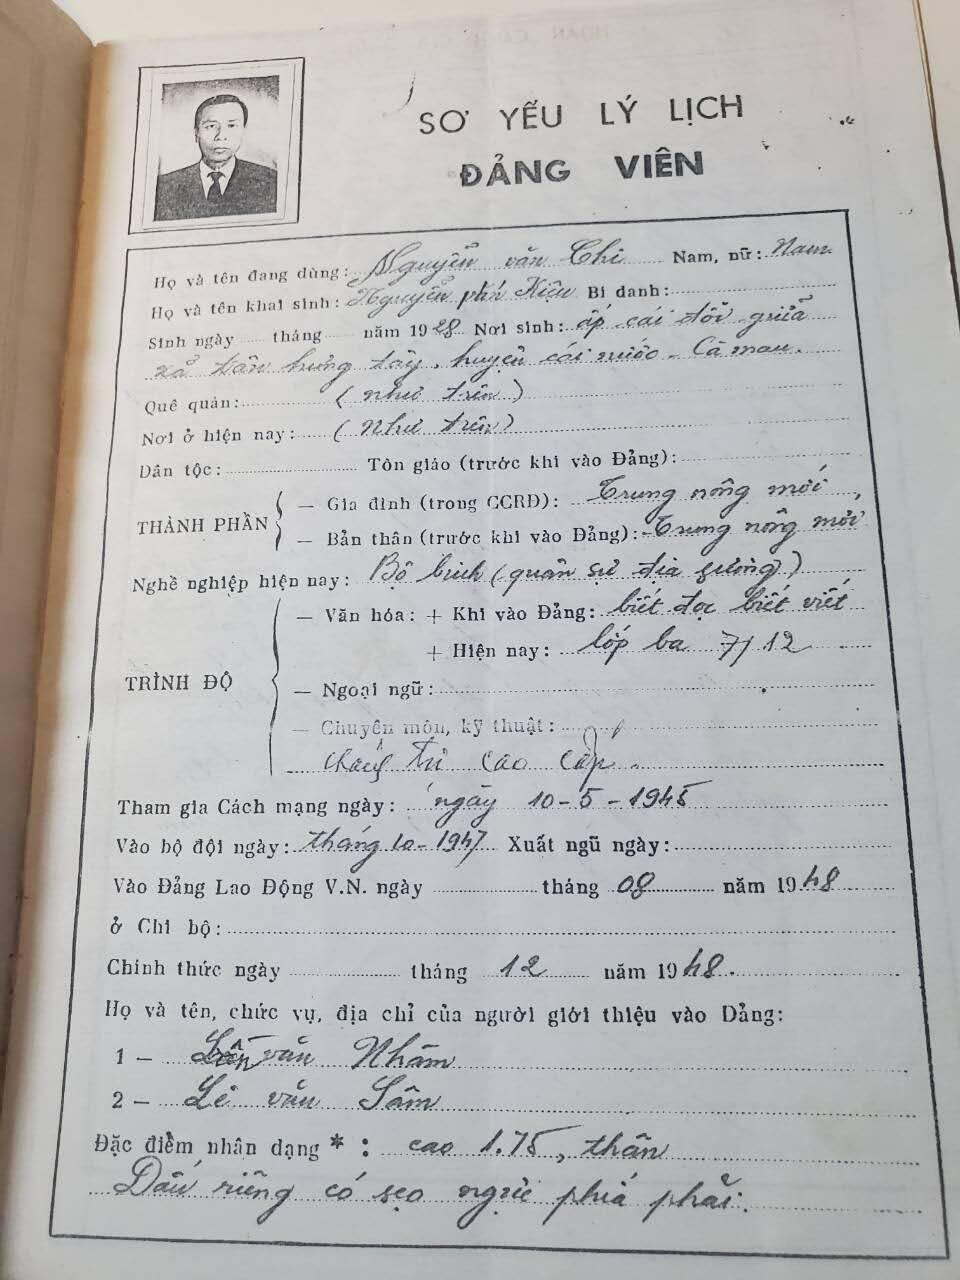 SƠ YẾU LÝ LỊCH
ĐẢNG VIÊN
Họ và tên đang dùng: Nguyễn văn Chi Nam, nữ: Nam
Họ và tên khai sinh: Nguyễn phú Kiệu Bí danh:
Sinh ngày tháng năm 1928 Nơi sinh: ấp cái đôi giữa
xả tân hưng tây, huyện cái nước - Cà mau.
Quê quán: (như trên)
Nơi ở hiện nay: (Như trên)
Dân tộc: Tôn giáo (trước khi vào Đảng):
THÀNH PHẦN
— Gia đình (trong CCRĐ): Trung nông mới,
— Bản thân (trước khi vào Đảng): Trung nông mới
Nghề nghiệp hiện nay: Bộ binh (quân sự địa)
TRÌNH ĐỘ
— Văn hóa: + Khi vào Đảng: biết đọc biết viết
+ Hiện nay: lớp ba 7/12
— Ngoại ngữ:
— Chuyên môn, kỹ thuật:
cao cấp.
Tham gia Cách mạng ngày: ngày 10-5-1945
Vào bộ đội ngày: tháng 10-1947 Xuất ngũ ngày:
Vào Đảng Lao Động V.N. ngày tháng 08 năm 1948
ở Chi bộ:
Chính thức ngày tháng 12 năm 1948.
Họ và tên, chức vụ, địa chỉ của người giới thiệu vào Đảng:
1 — văn Nhâm
2 — Lê văn Sâm
Đặc điểm nhân dạng * : cao 1.75, thân
Dấu riêng có sẹo ngực phía phải.